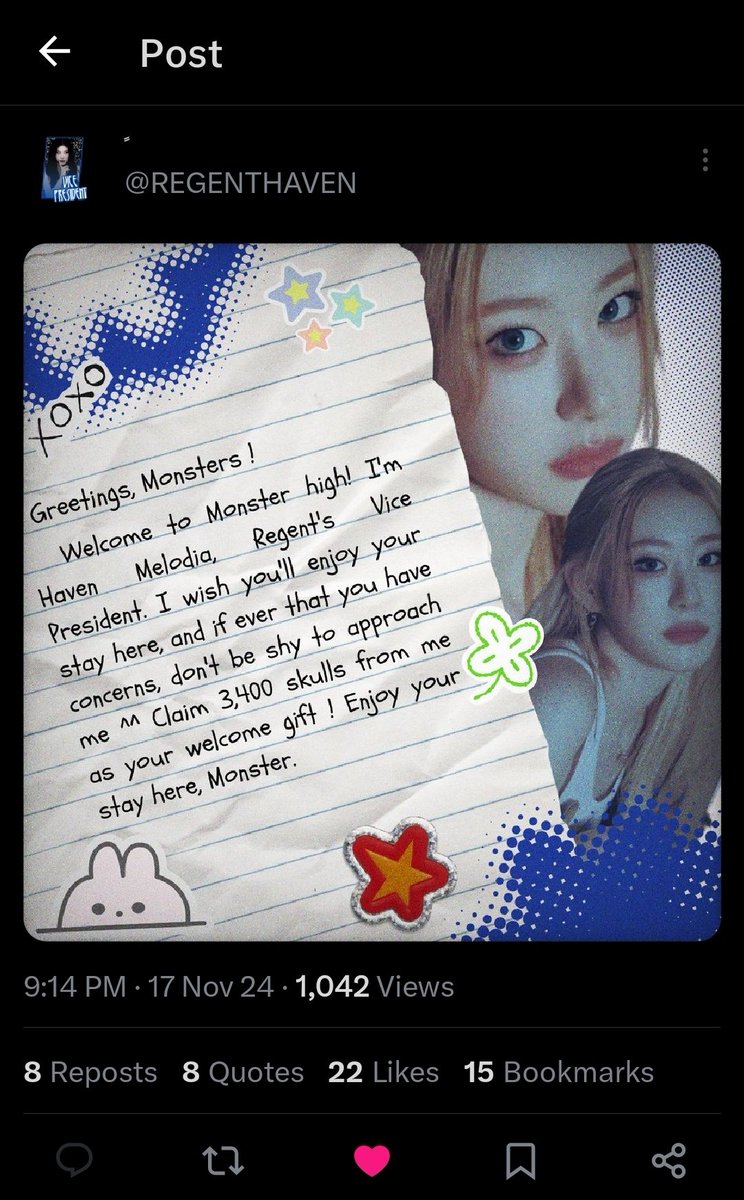 Post
VICE
PRESIDENT
@REGENTHAVEN
XOXO
Greetings, Monsters !
Welcome to Monster high! I'm
Haven Melodia, Regent's Vice
President. I wish you'll enjoy your
stay here, and if ever that you have
concerns, don't be shy to approach
me ^^ Claim 3,400 skulls from me
as your welcome gift ! Enjoy your
stay here, Monster.
9:14 PM · 17 Nov 24 · 1,042 Views
8 Reposts 8 Quotes 22 Likes 15 Bookmarks